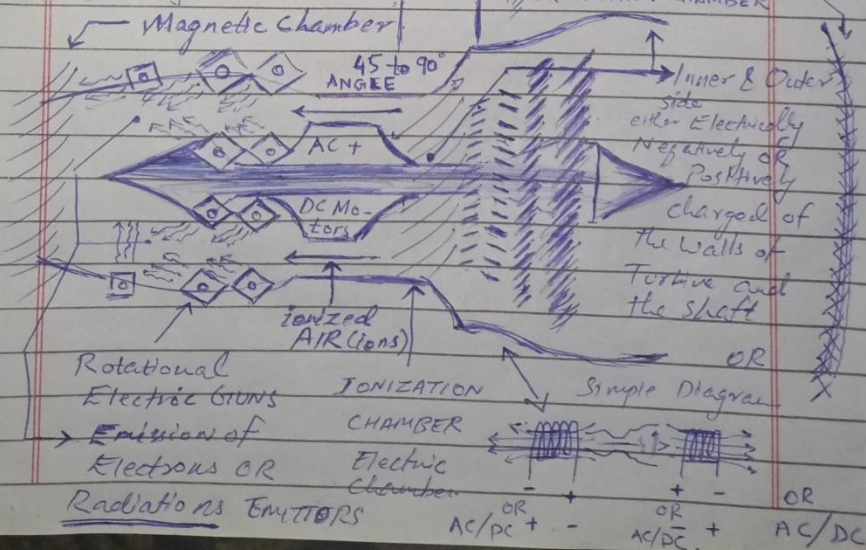 CHAMBER
Magnetic Chamber
45 to 90°
ANGLE
Inner & Outer
side
either Electrically
Negatively OR
Positively
charged of
the Walls of
Turbine and
the shaft
OR
AC +
DC Mo-
tors
ionized
AIR (ions)
Rotational
Electric GUNS
Emission of
Electrons OR
Radiations EMITTORS
IONIZATION
CHAMBER
Electric
Chamber
Simple Diagram
- +
OR
AC/DC + -
+ -
OR
AC/DC - +
OR
AC/DC